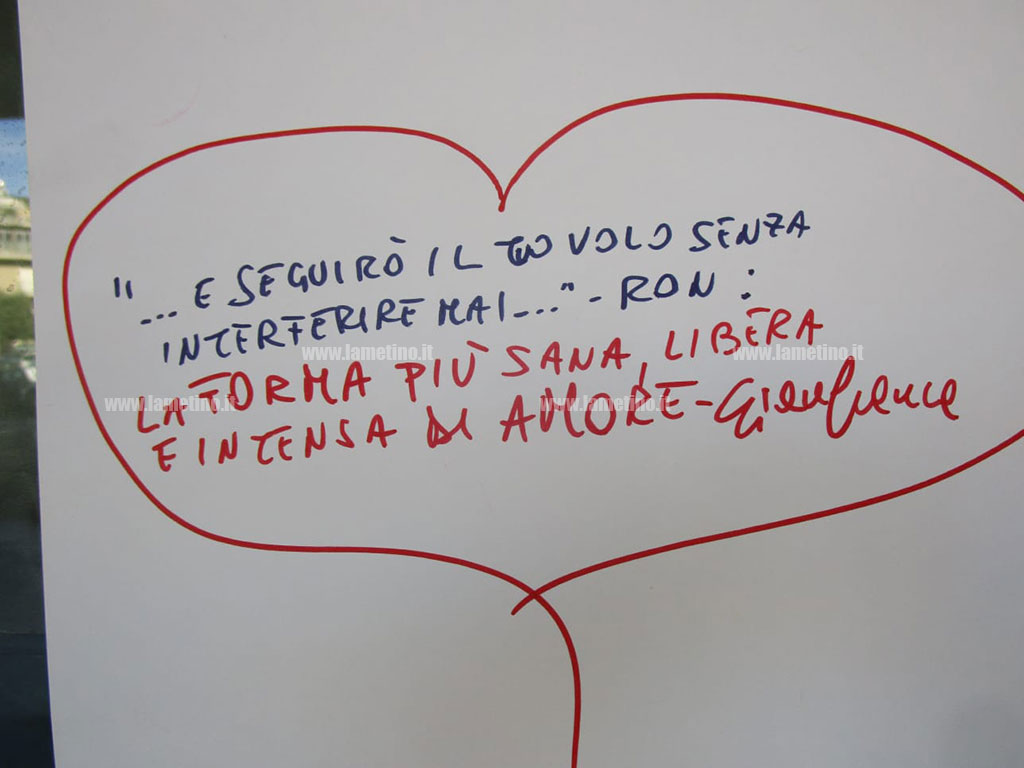 "... E SEGUIRÒ IL TUO VOLO SENZA
INTERFERIRE MAI..." - RON :
LA FORMA PIÙ SANA, LIBERA
E INTENSA DI AMORE - Gianfranco
www.lametino.it
www.lametino.it
www.lametino.it
www.lametino.it